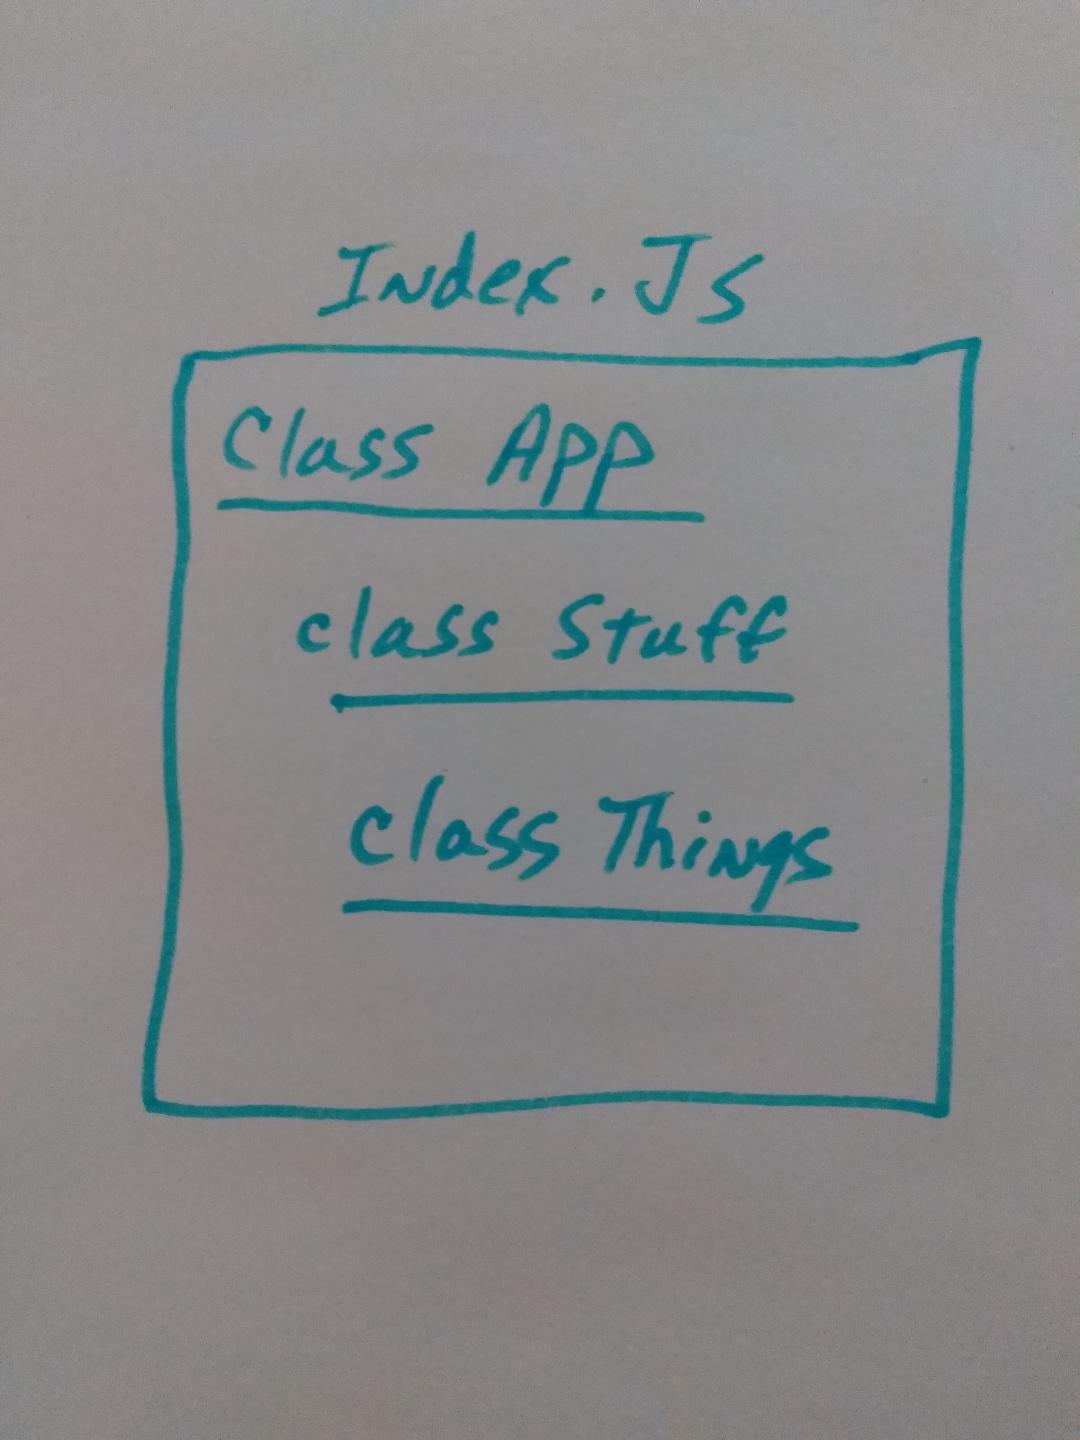 Index.Js
Class App
class Stuff
class Things